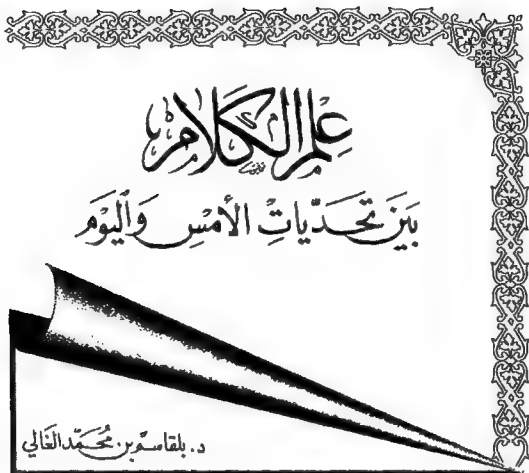 عِلْمُ الكَلَامِ
بَيْنَ تَحَدِّيَاتِ الأَمْسِ وَاليَوْمِ
د. بلقاسم بن محمّد الغالي